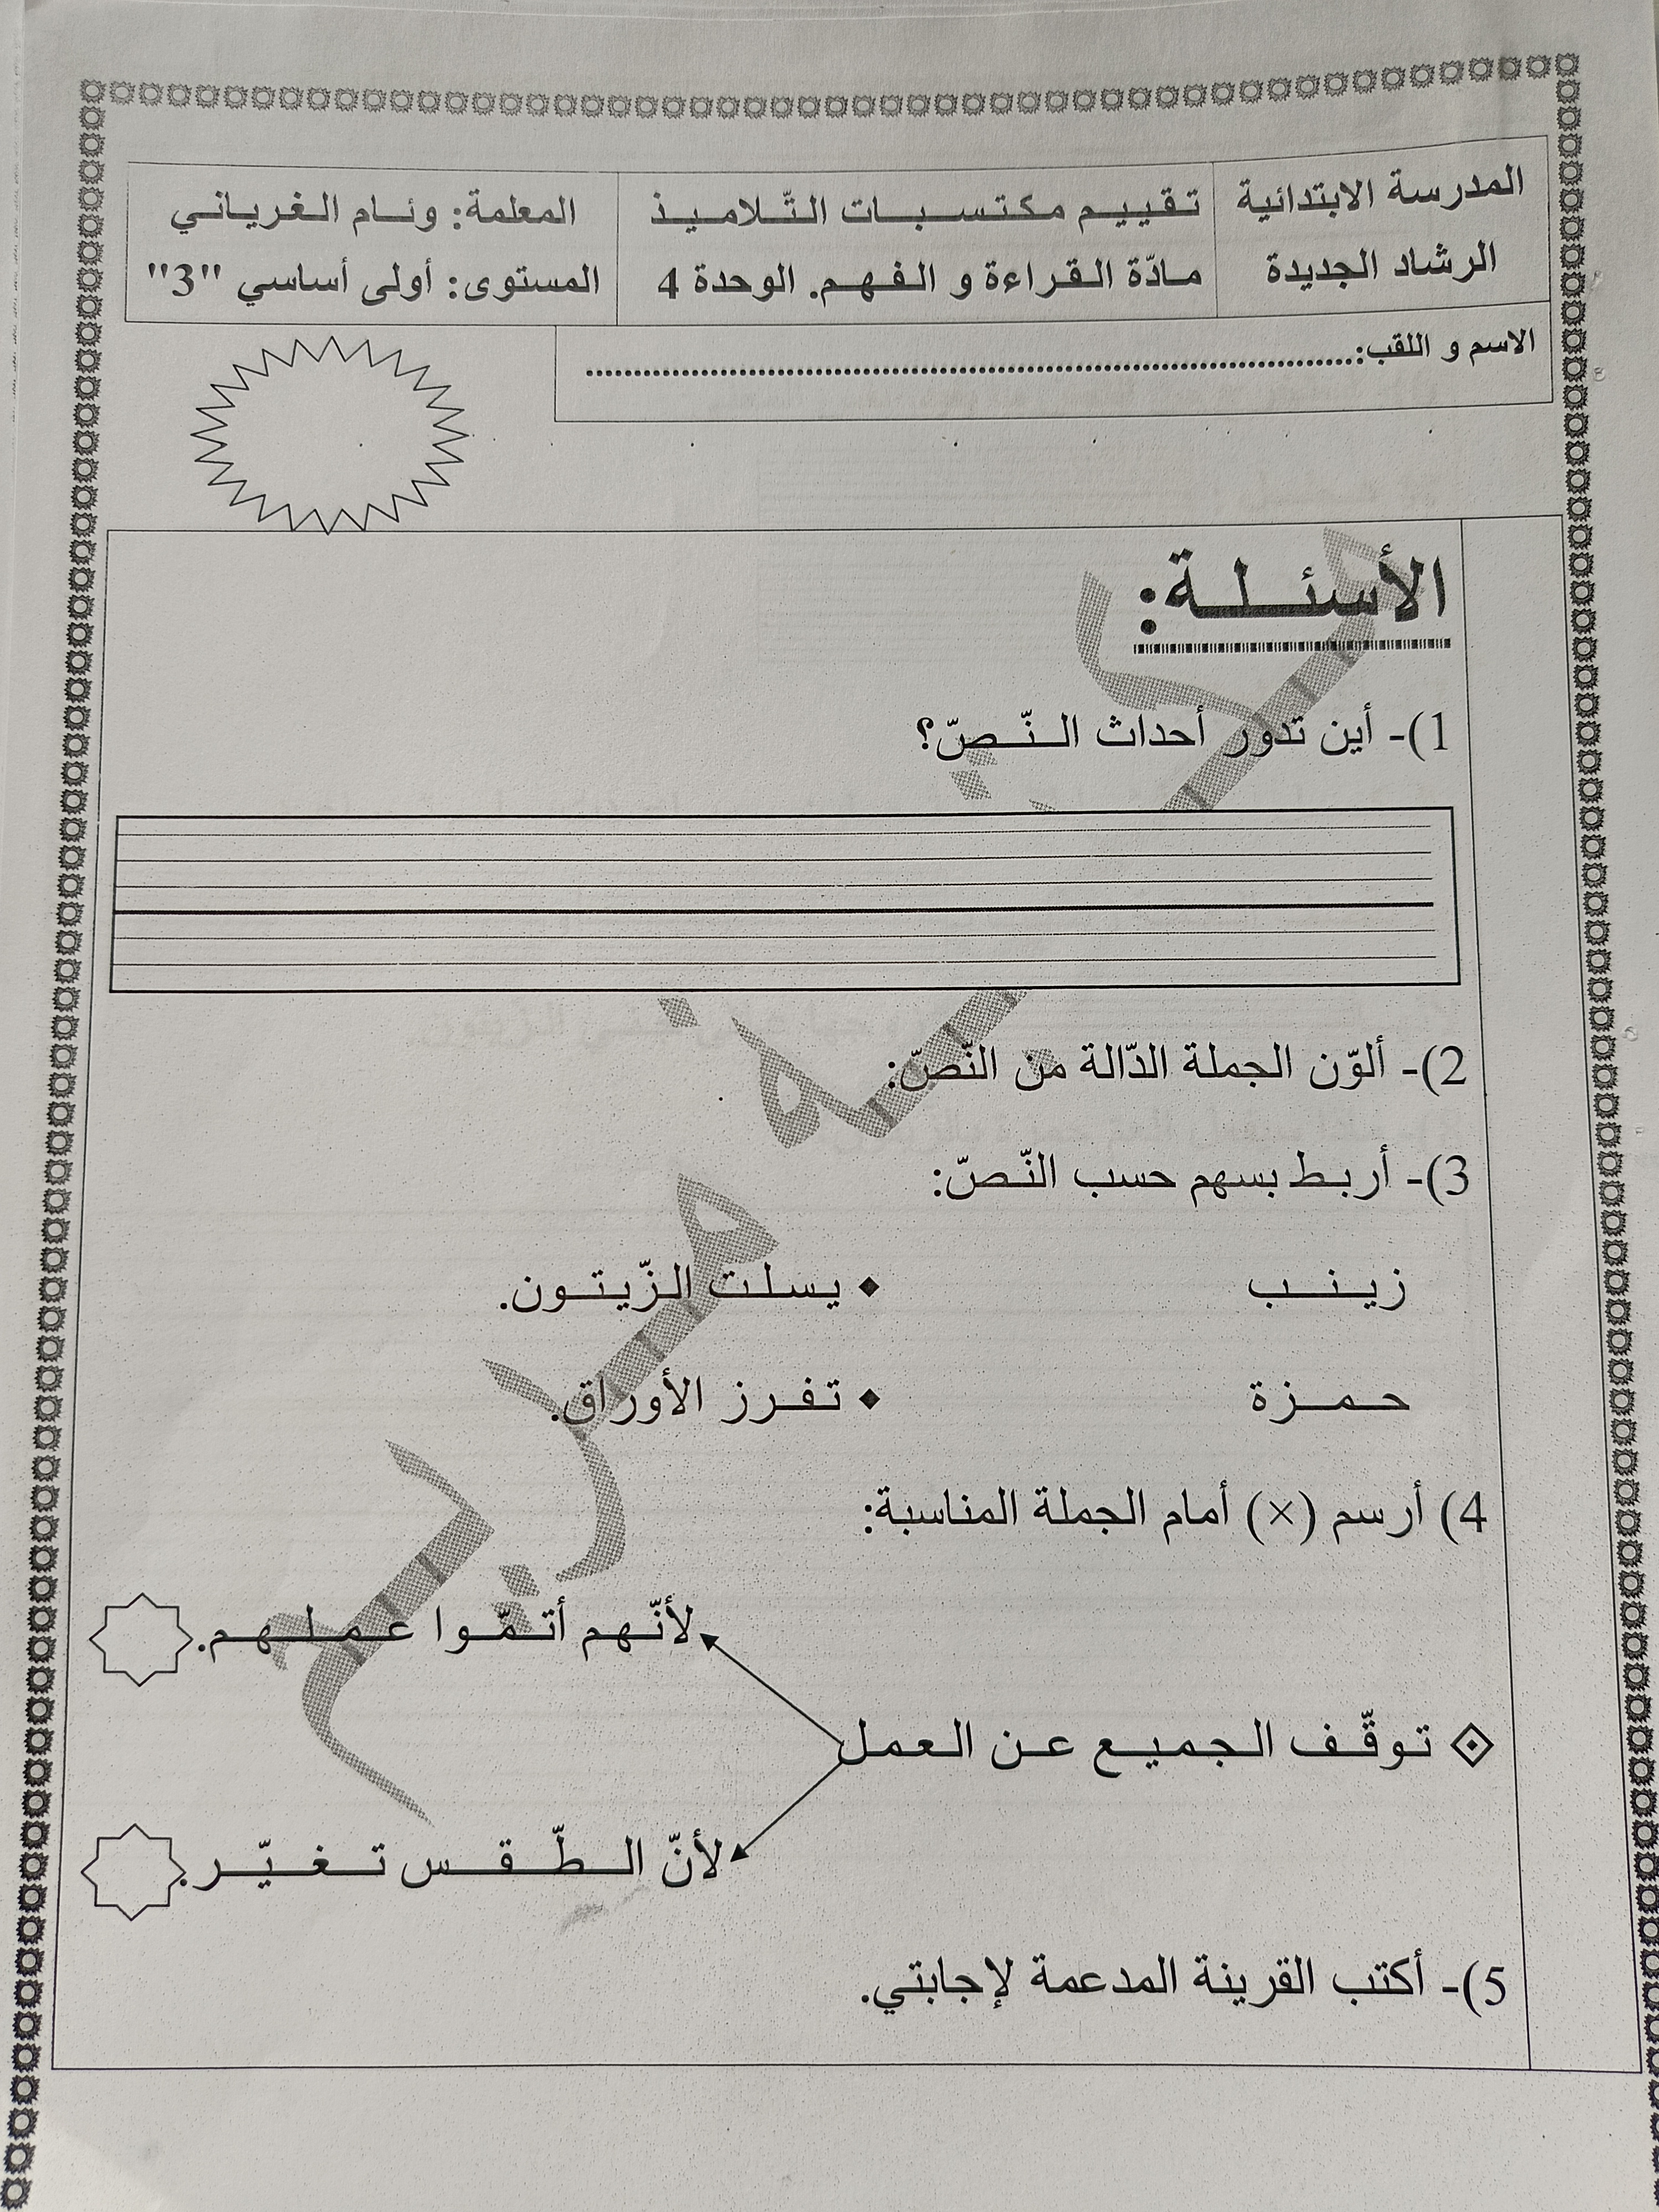 المدرسة الابتدائية
الرشاد الجديدة
تقييم مكتسبات التّلاميذ
مادّة القراءة و الفهم. الوحدة 4
المعلمة: وئام الغرياني
المستوى: أولى أساسي "3"
الاسم و اللقب:........................................................................
الأسئلة:
1)- أين تدور أحداث النّصّ؟
2)- ألوّن الجملة الدّالة من النّصّ:
3)- أربط بسهم حسب النّصّ:
زينب ♦ يسلت الزّيتون.
حمزة ♦ تفرز الأوراق.
4) أرسم (×) أمام الجملة المناسبة:
لأنّهم أتمّوا عملهم.
توقّف الجميع عن العمل
لأنّ الطّقس تغيّر.
5)- أكتب القرينة المدعمة لإجابتي.